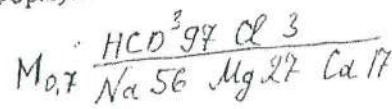 M0,7 HCO³ 97 Cl 3
Na 56 Mg 27 Ca 17